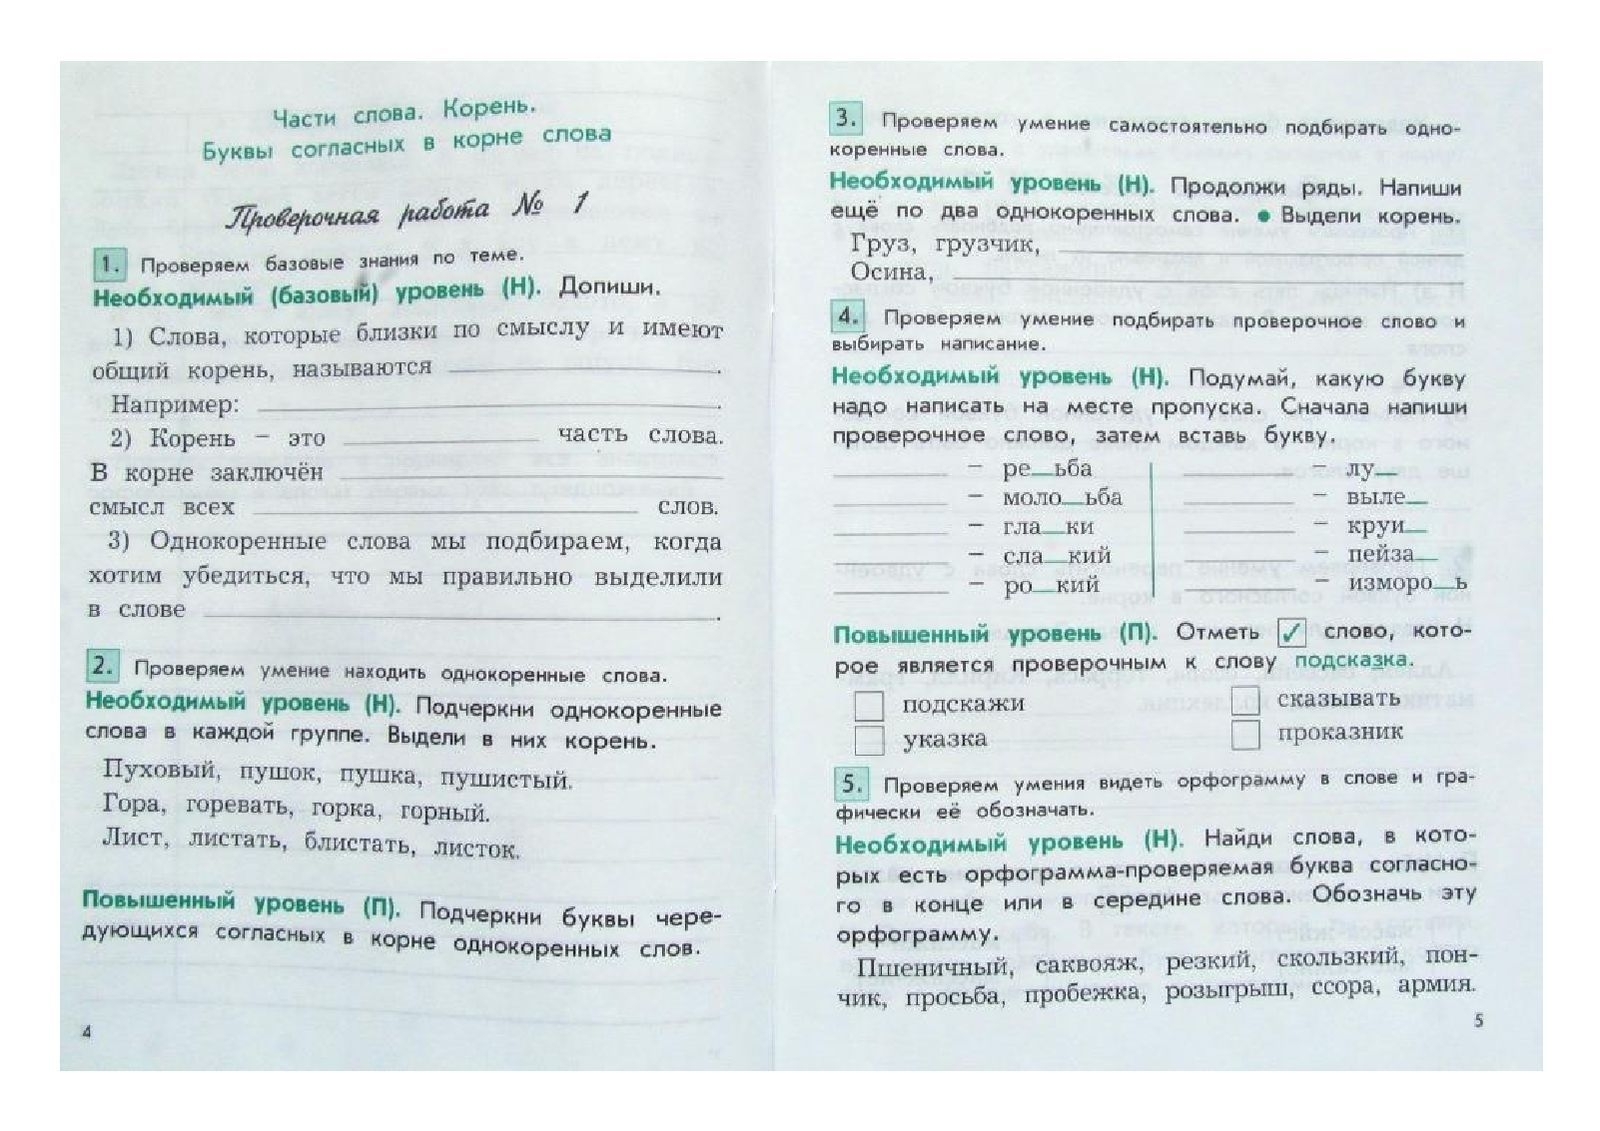 Части слова. Корень.
Буквы согласных в корне слова
Проверочная работа № 1
1. Проверяем базовые знания по теме.
Необходимый (базовый) уровень (Н). Допиши.
1) Слова, которые близки по смыслу и имеют
общий корень, называются ____________.
Например: ____________.
2) Корень – это ____________ часть слова.
В корне заключён ____________
смысл всех ____________ слов.
3) Однокоренные слова мы подбираем, когда
хотим убедиться, что мы правильно выделили
в слове ____________.
2. Проверяем умение находить однокоренные слова.
Необходимый уровень (Н). Подчеркни однокоренные
слова в каждой группе. Выдели в них корень.
Пуховый, пушок, пушка, пушистый.
Гора, горевать, горка, горный.
Лист, листать, блистать, листок.
Повышенный уровень (П). Подчеркни буквы чере-
дующихся согласных в корне однокоренных слов.
4
3. Проверяем умение самостоятельно подбирать одно-
коренные слова.
Необходимый уровень (Н). Продолжи ряды. Напиши
ещё по два однокоренных слова. • Выдели корень.
Груз, грузчик, ____________
Осина, ____________
4. Проверяем умение подбирать проверочное слово и
выбирать написание.
Необходимый уровень (Н). Подумай, какую букву
надо написать на месте пропуска. Сначала напиши
проверочное слово, затем вставь букву.
________ – ре__ьба ________ – лу__
________ – моло__ьба ________ – выле__
________ – гла__ки ________ – круи__
________ – сла__кий ________ – пейза__
________ – ро__кий ________ – изморо__ь
Повышенный уровень (П). Отметь ✓ слово, кото-
рое является проверочным к слову подсказка.
подскажи сказывать
указка проказник
5. Проверяем умения видеть орфограмму в слове и гра-
фически её обозначать.
Необходимый уровень (Н). Найди слова, в кото-
рых есть орфограмма-проверяемая буква согласно-
го в конце или в середине слова. Обозначь эту
орфограмму.
Пшеничный, саквояж, резкий, скользкий, пон-
чик, просьба, пробежка, розыгрыш, ссора, армия.
5